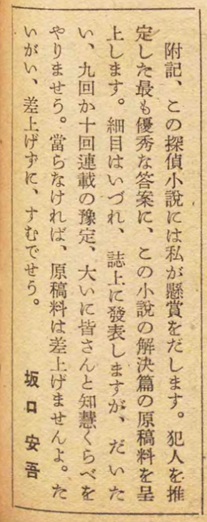 附記、この探偵小説には私が懸賞をだします。犯人を推
定した最も優秀な答案に、この小説の解決篇の原稿料を呈
上します。細目はいづれ、誌上に發表しますが、だいた
い、九回か十回連載の豫定、大いに皆さんと知慧くらべを
やりませう。當らなければ、原稿料は差上げませんよ。た
いがい、差上げずに、すむでせう。
坂口安吾